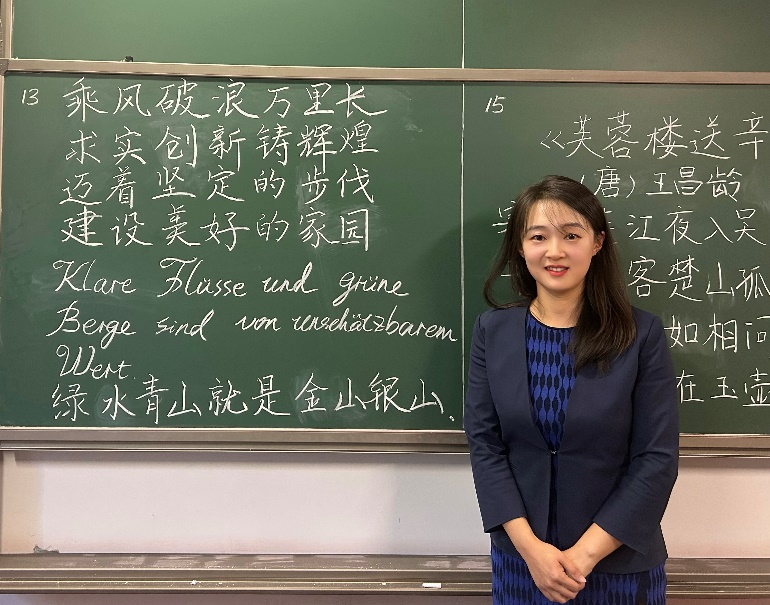 13
乘风破浪万里长
求实创新铸辉煌
迈着坚定的步伐
建设美好的家园
Klare Flüsse und grüne
Berge sind von unschätzbarem
Wert.
绿水青山就是金山银山.
15
《芙蓉楼送辛
(唐)王昌龄
江夜入吴
客楚山孤
如相问
在玉壶